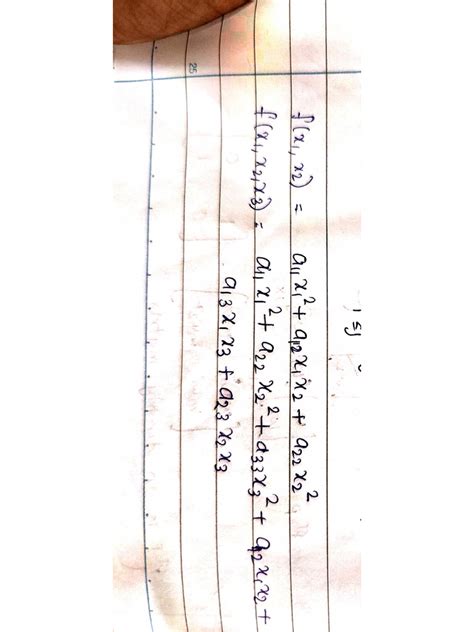 i≤j
f(x₁, x₂) = a₁₁x₁² + a₁₂x₁x₂ + a₂₂x₂²
f(x₁, x₂, x₃) = a₁₁x₁² + a₂₂x₂² + a₃₃x₃² + a₁₂x₁x₂ +
a₁₃x₁x₃ + a₂₃x₂x₃
25